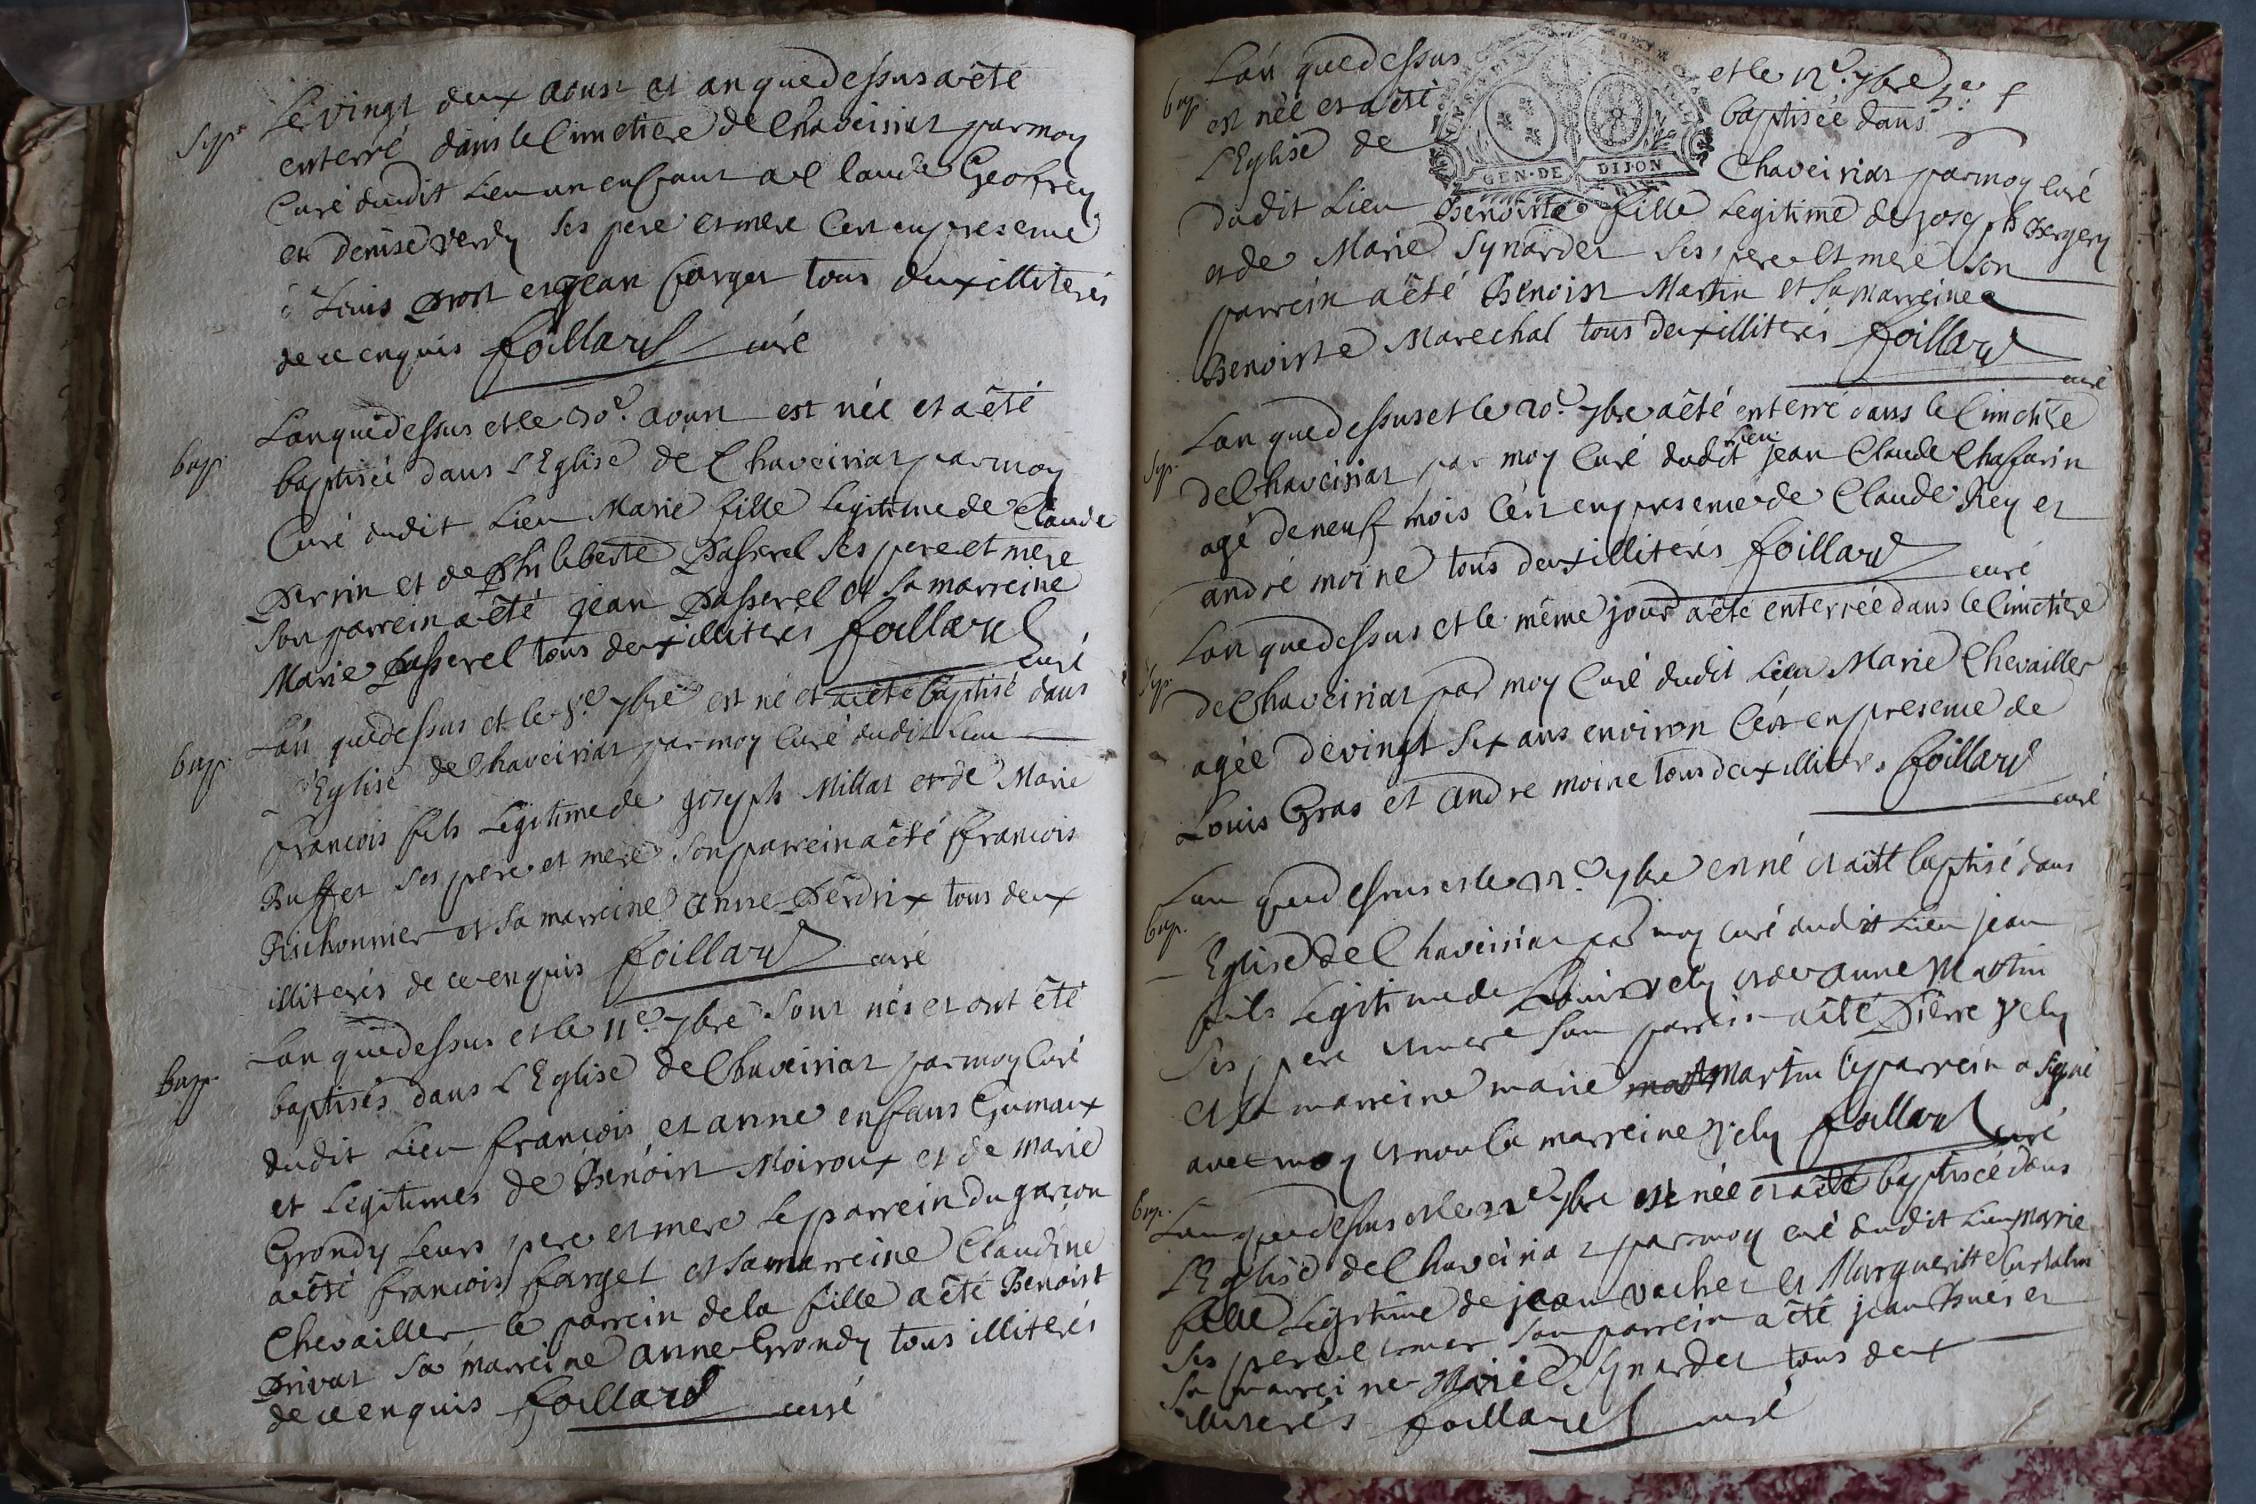 sep.
Le vingt deux aoust et an que dessus a êté
enterré dans le Cimetiere de Chaveiriat par moy
Curé dudit Lieu un enfant a Claude Geofrey
et denise verdy ses pere et mere C'est en presence
Louis Prost et jean farget tous deux illiterés
de ce enquis foillard curé
bap.
L'an que dessus et le 30e. aoust est née et a êté
baptisée dans l'Eglise de Chaveiriat par moy
Curé dudit Lieu Marie fille Legitime de Claude
Perrin et de Philiberte Passerel ses pere et mere
son parrein a êté jean Passerel et sa marreine
Marie Passerel tous deux illiterés foillard
curé
bap.
L'an que dessus et le 8e. 7bre est né et a êté baptisé dans
l'Eglise de Chaveiriat par moy Curé dudit Lieu
francois fils Legitime de joseph Millat et de Marie
Buffet ses pere et mere son parrein a êté francois
Bichonnier et sa marreine anne Perdrix tous deux
illiterés de ce enquis foillard curé
bap.
L'an que dessus et le 11e. 7bre sont nés et ont êté
baptisés dans l'Eglise de Chaveiriat par moy Curé
dudit Lieu francois et anne enfans Gumaux
et Legitimes de Benoist Moiroux et de marie
Grondy Leurs pere et mere Le parrein du garcon
a êté francois farget et sa marreine Claudine
Chevailler, le parrein de la fille a êté Benoist
Privat sa marreine anne Grondy tous illiterés
de ce enquis foillard curé
bap.
L'an que dessus et le 12e. 7bre
est née et a êté baptisée dans
l'Eglise de Chaveiriat par moy Curé
GEN. DE DIJON
dudit Lieu Benoiste fille Legitime de joseph Bergery
et de Marie Synardet ses pere et mere son
parrein a êté Benoist Martin et sa marreine
Benoiste Marechal tous deux illiterés foillard
curé
sep.
L'an que dessus et le 20e. 7bre a êté enterré dans le Cimetiere
de Chaveiriat par moy Curé dudit Lieu jean Claude Chaffarin
agé de neuf mois C'est en presence de Claude Rey et
andré moine tous deux illiterés foillard curé
sep.
L'an que dessus et le même jour a êté enterrée dans le Cimetiere
de Chaveiriat par moy Curé dudit Lieu Marie Chevailler
agée de vingt six ans environ C'est en presence de
Louis Gras et andre moine tous deux illiterés foillard
curé
bap.
L'an que dessus et le 7bre est né et a êté baptisé dans
l'Eglise de Chaveiriat par moy curé dudit Lieu jean
fils Legitime de Louis vely et de anne Martin
ses pere et mere son parrein a êté Pierre vely
et sa marreine marie Martin le parrein a signé
avec moy et non la marreine vely foillard curé
bap.
L'an que dessus et le 22e 7bre est née et a êté baptisée dans
l'Eglise de Chaveiriat par moy curé dudit Lieu Marie
fille Legitime de jean vacher et Margueritte
ses pere et mere son parrein a êté jean et
sa marreine Marie Synardet tous deux
illiterés foillard curé